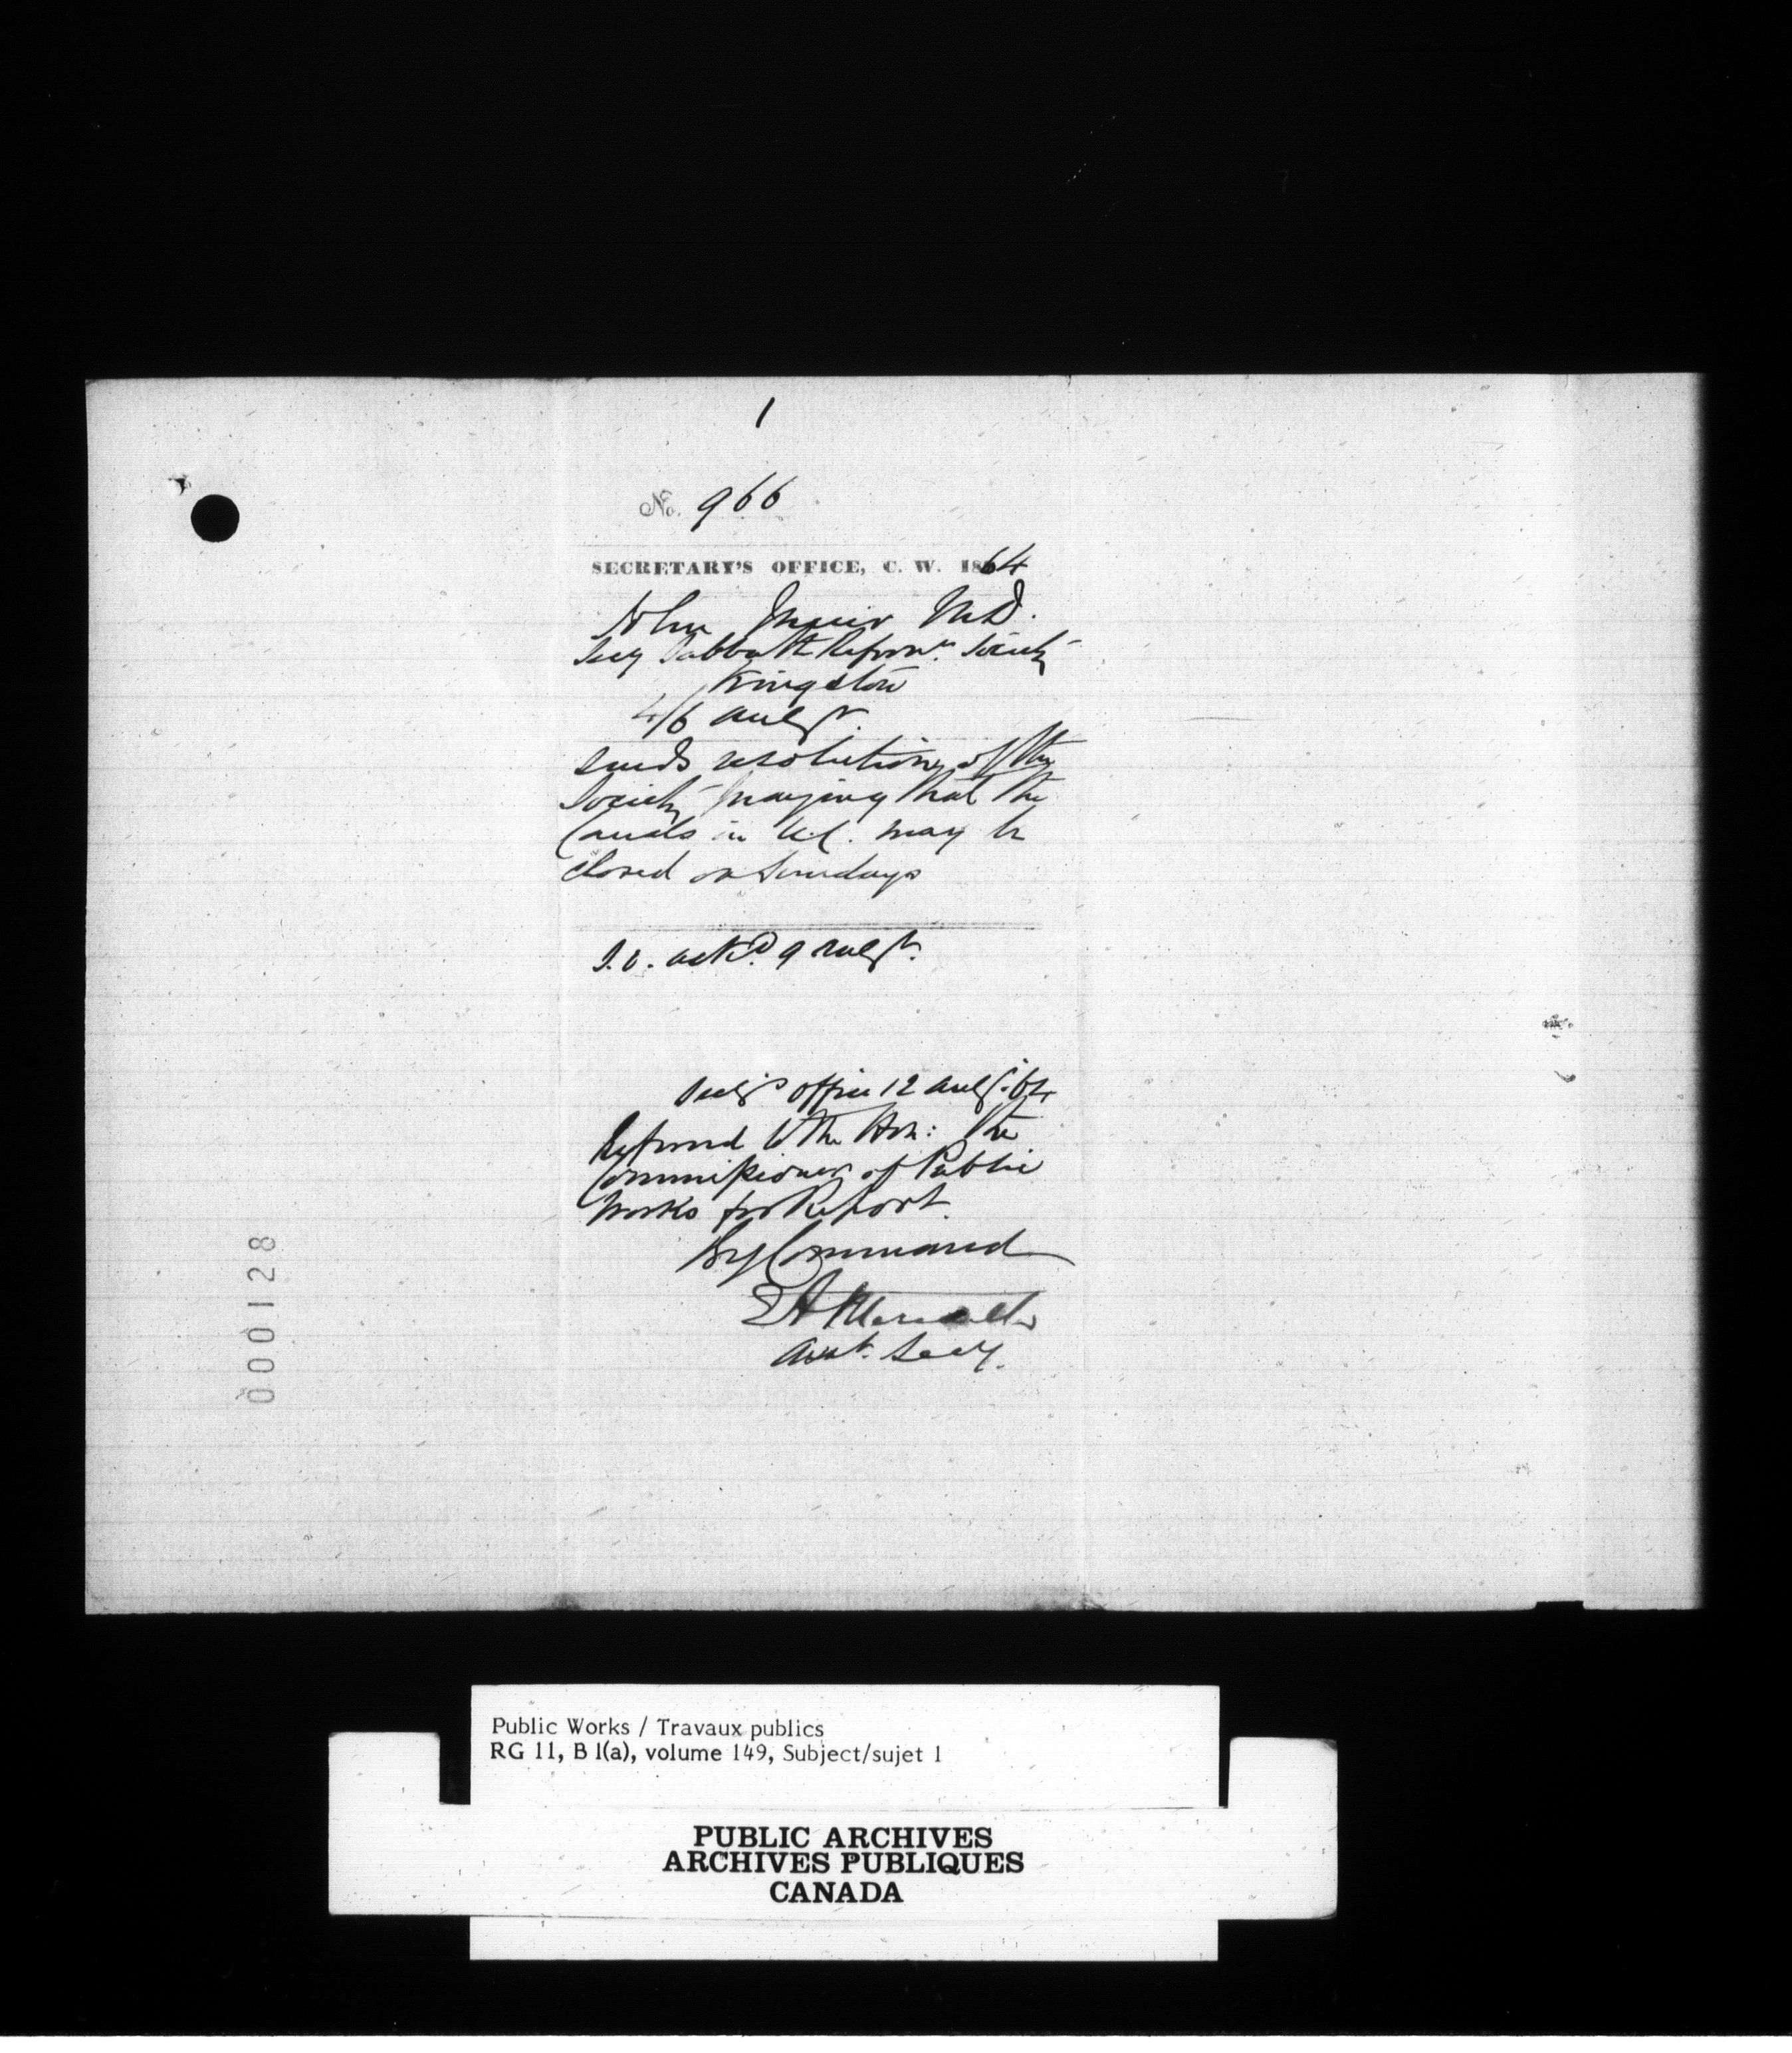 1
No. 966
SECRETARY'S OFFICE, C. W. 1864
John Muir M.D.
Secy Sabbath Reformn. Society
Kingston
4/6 Augt.
sends resolutions of the
Society praying that the
Canals in U.C. may be
closed on Sundays
ackd. 9 Augt.
Secys Office 12 Augt. 64
Referred to the Hon: the
Commissioner of Public
Works for Report.
By Command
E A Meredith
Asst. Secy.
000128
Public Works / Travaux publics
RG 11, B 1(a), volume 149, Subject/sujet 1
PUBLIC ARCHIVES
ARCHIVES PUBLIQUES
CANADA